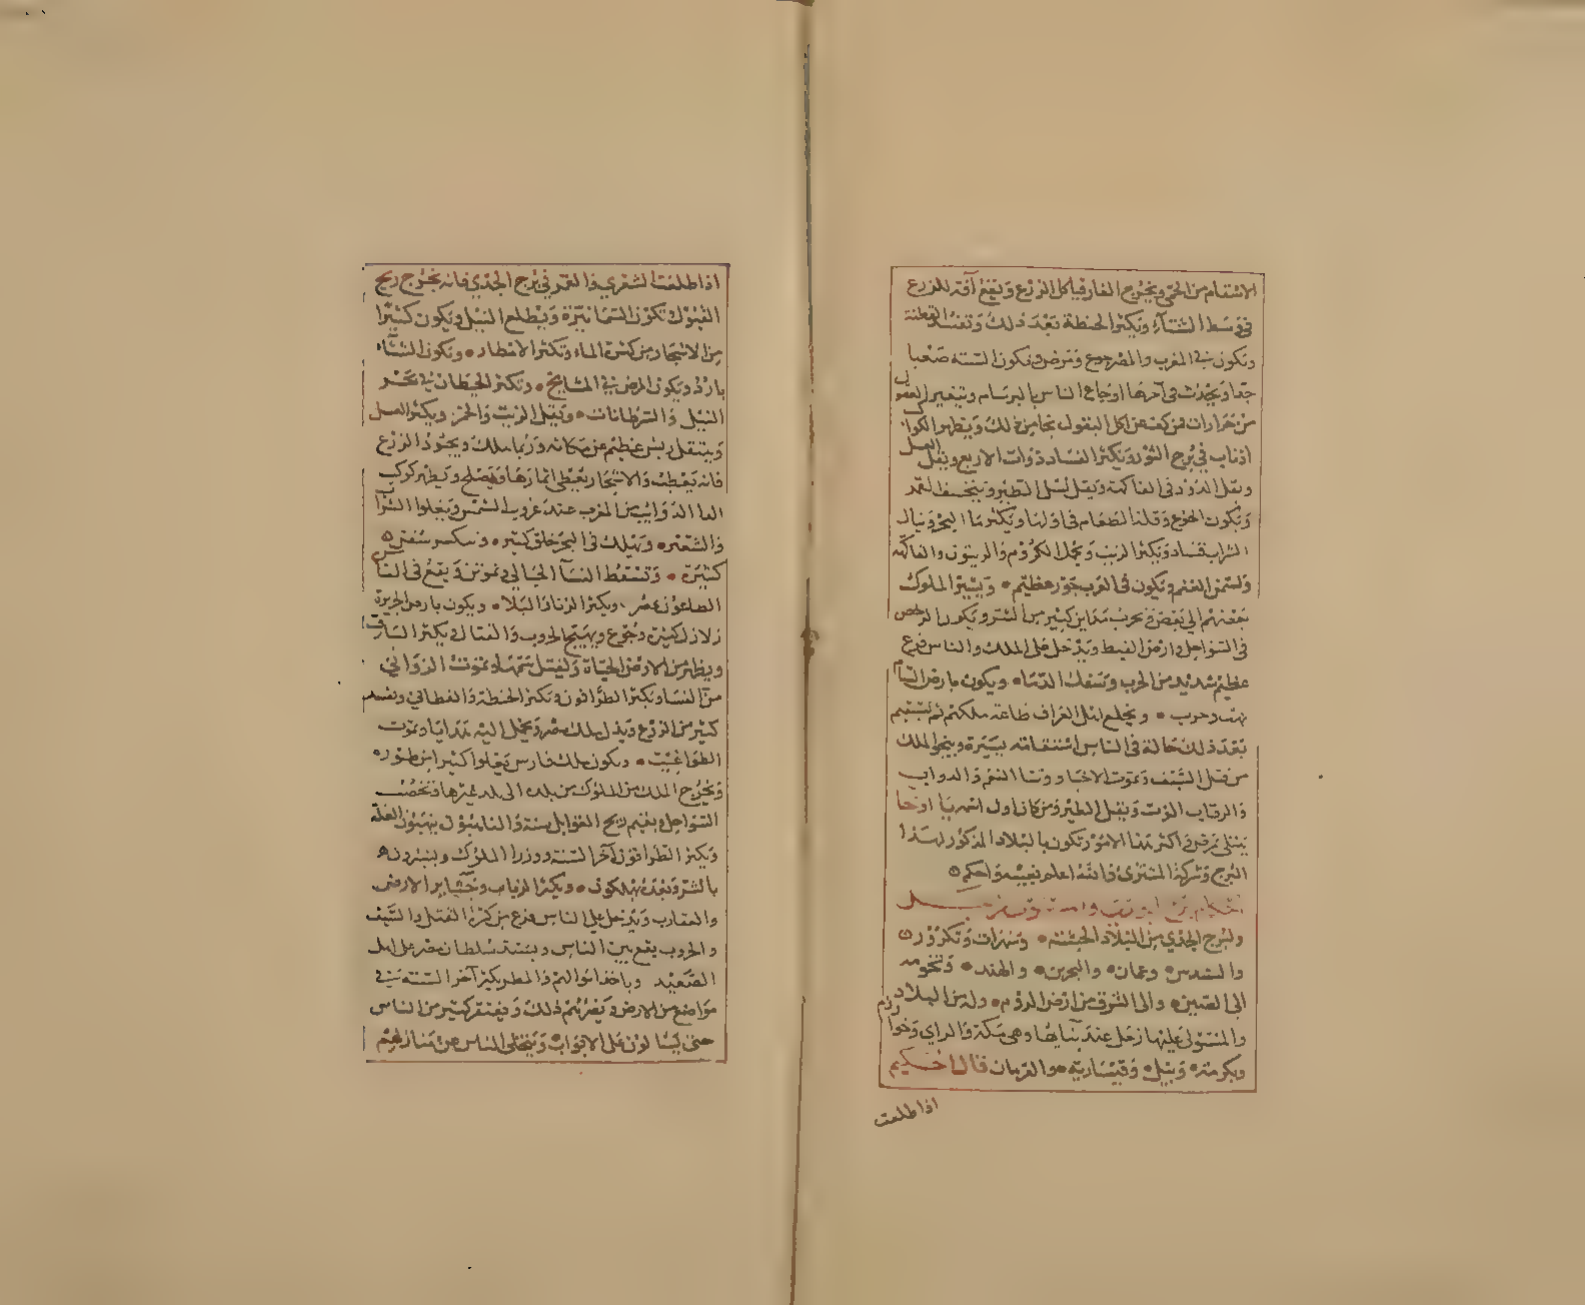 الاسقام من الحمى ويخرج الفار فياكل الزرع وتقع آفة للزرع
في وسط الشتاء ويكثر الحنطة بعد ذلك وتفسد القطنة
وتكون في المغرب والمصر جوع ومرض وتكون السنة صعبا
جدا ويحدث في آخرها اوجاع الناس بالبرسام وتتغير
من حرارات فمن كف عن اكل البقول نجا من ذلك ويظهر الكواكب
اذناب في برج الثور ويكثر الفساد ذوات الاربع ويقل العسل
ويقل الدود في الفاكهة ويقل نسل الطير وينخسف القمر
ويكون الجوع وقلة الطعام في اولها ويكثر ماء البحر وينال
الشراب فساد ويكثر الزبيب ويحمل الكروم والزيتون والفاكهة
وتسمن الغنم ويكون في العرب جور عظيم ويسير الملوك
بعضهم الى بعض في حرب مداين كثير من الشر ويكون الرخص
في السواحل وارض القبط ويدخل على الملك والناس فزع
عظيم شديد من الحرب وتسفك الدماء ويكون بارض الشام
نهب وحرب ويخلع اهل العراف طاعة ملكهم ثم
بعد ذلك حالة في الناس استقامة يسيرة وينجو الملك
من قتل السيف وتموت الاحبار ونسا الغنم والدواب
والرقاب الموت ويقل الطير ومن كان اول
يبتلى بمرض في اكثر هذا الامور تكون بالبلاد المذكور لهذا
البرج وشركة المشترى والله اعلم بغيبه واحكم
ولبرج الجدي من البلاد الحبشة وتكرور
والسند وعمان والبحرين والهند وتخومه
الى الصين والى الشرق من ارض الروم وله من البلاد
والمستولى عليها زحل عند بنايها وهي مكة والراي
وقيسارية والترمان قال الحكيم
اذا طلعت
اذا طلعت الشعري والقمر في برج الجدي فانه يخرج ريح
القبول تكون السماء نيرة ويطلع النيل ويكون كثيرا
من الاشجار من كثرة الماء وتكثر الامطار ويكون الشتاء
بارد ويكون المرض في المشايخ وتكثر الحيطان في بحر
النيل والسرطانات ويقل الزيت والخمر ويكثر العسل
وينتقل ريس عظيم عن مكانه وربما هلك ويجود الزرع
فانه يعطب والاشجار تعطى اثمارها ويصلح ويظهر كوكب
الذوايب من المغرب عند غروب الشمس ويغلوا الشراب
والشعير ويهلك في البحر خلق كثير وينكسر سفن
كثيرة وتسقط النساء الحبالى ويموتن ويقع في الناس
الطاعون بمصر ويكثر الزنا والبلاء ويكون بارض الجزيرة
زلازل كثيرة وجوع ويهيج الحروب والقتال ويكثر السراق
ويظهر من الارض الحياة ولقتل بسمها وتموت الزواني
من النسا ويكثر الطوافون وتكثر الحنطة والقطاني ويفسد
كثير من الزرع ويذل ملك مصر ويحمل اليه هدايا وتموت
الطواغيت ويكون ملك فارس يعلوا كثيرا من طوره
ويخرج الملك من الملوك من بلده الى بلد غيرها وتخصب
السواحل ويقيم ريح القوابل سنة والناس ينهبون الغلة
ويكثر الطوافون آخر السنة ووزراء الملوك
بالشر وبعده يهلكون ويكثر الذباب وخشاير الارض
والعقارب ويدخل على الناس فزع من كثرة القتل والسيف
والحروب يقع بين الناس ويشتد سلطان مصر على اهل
الصعيد وياخذ اموالهم والمطر يكثر آخر السنة في
مواضع من الارض ويضرهم ذلك ويفتقر كثير من الناس
حتى يسالون على الابواب ويتخلى الناس عن منازلهم